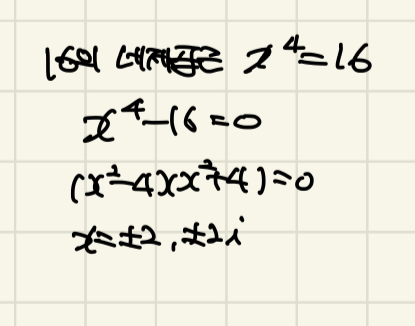 16의 네제곱근 x⁴=16
x⁴-16=0
(x²-4)(x²+4)=0
x=±2, ±2i